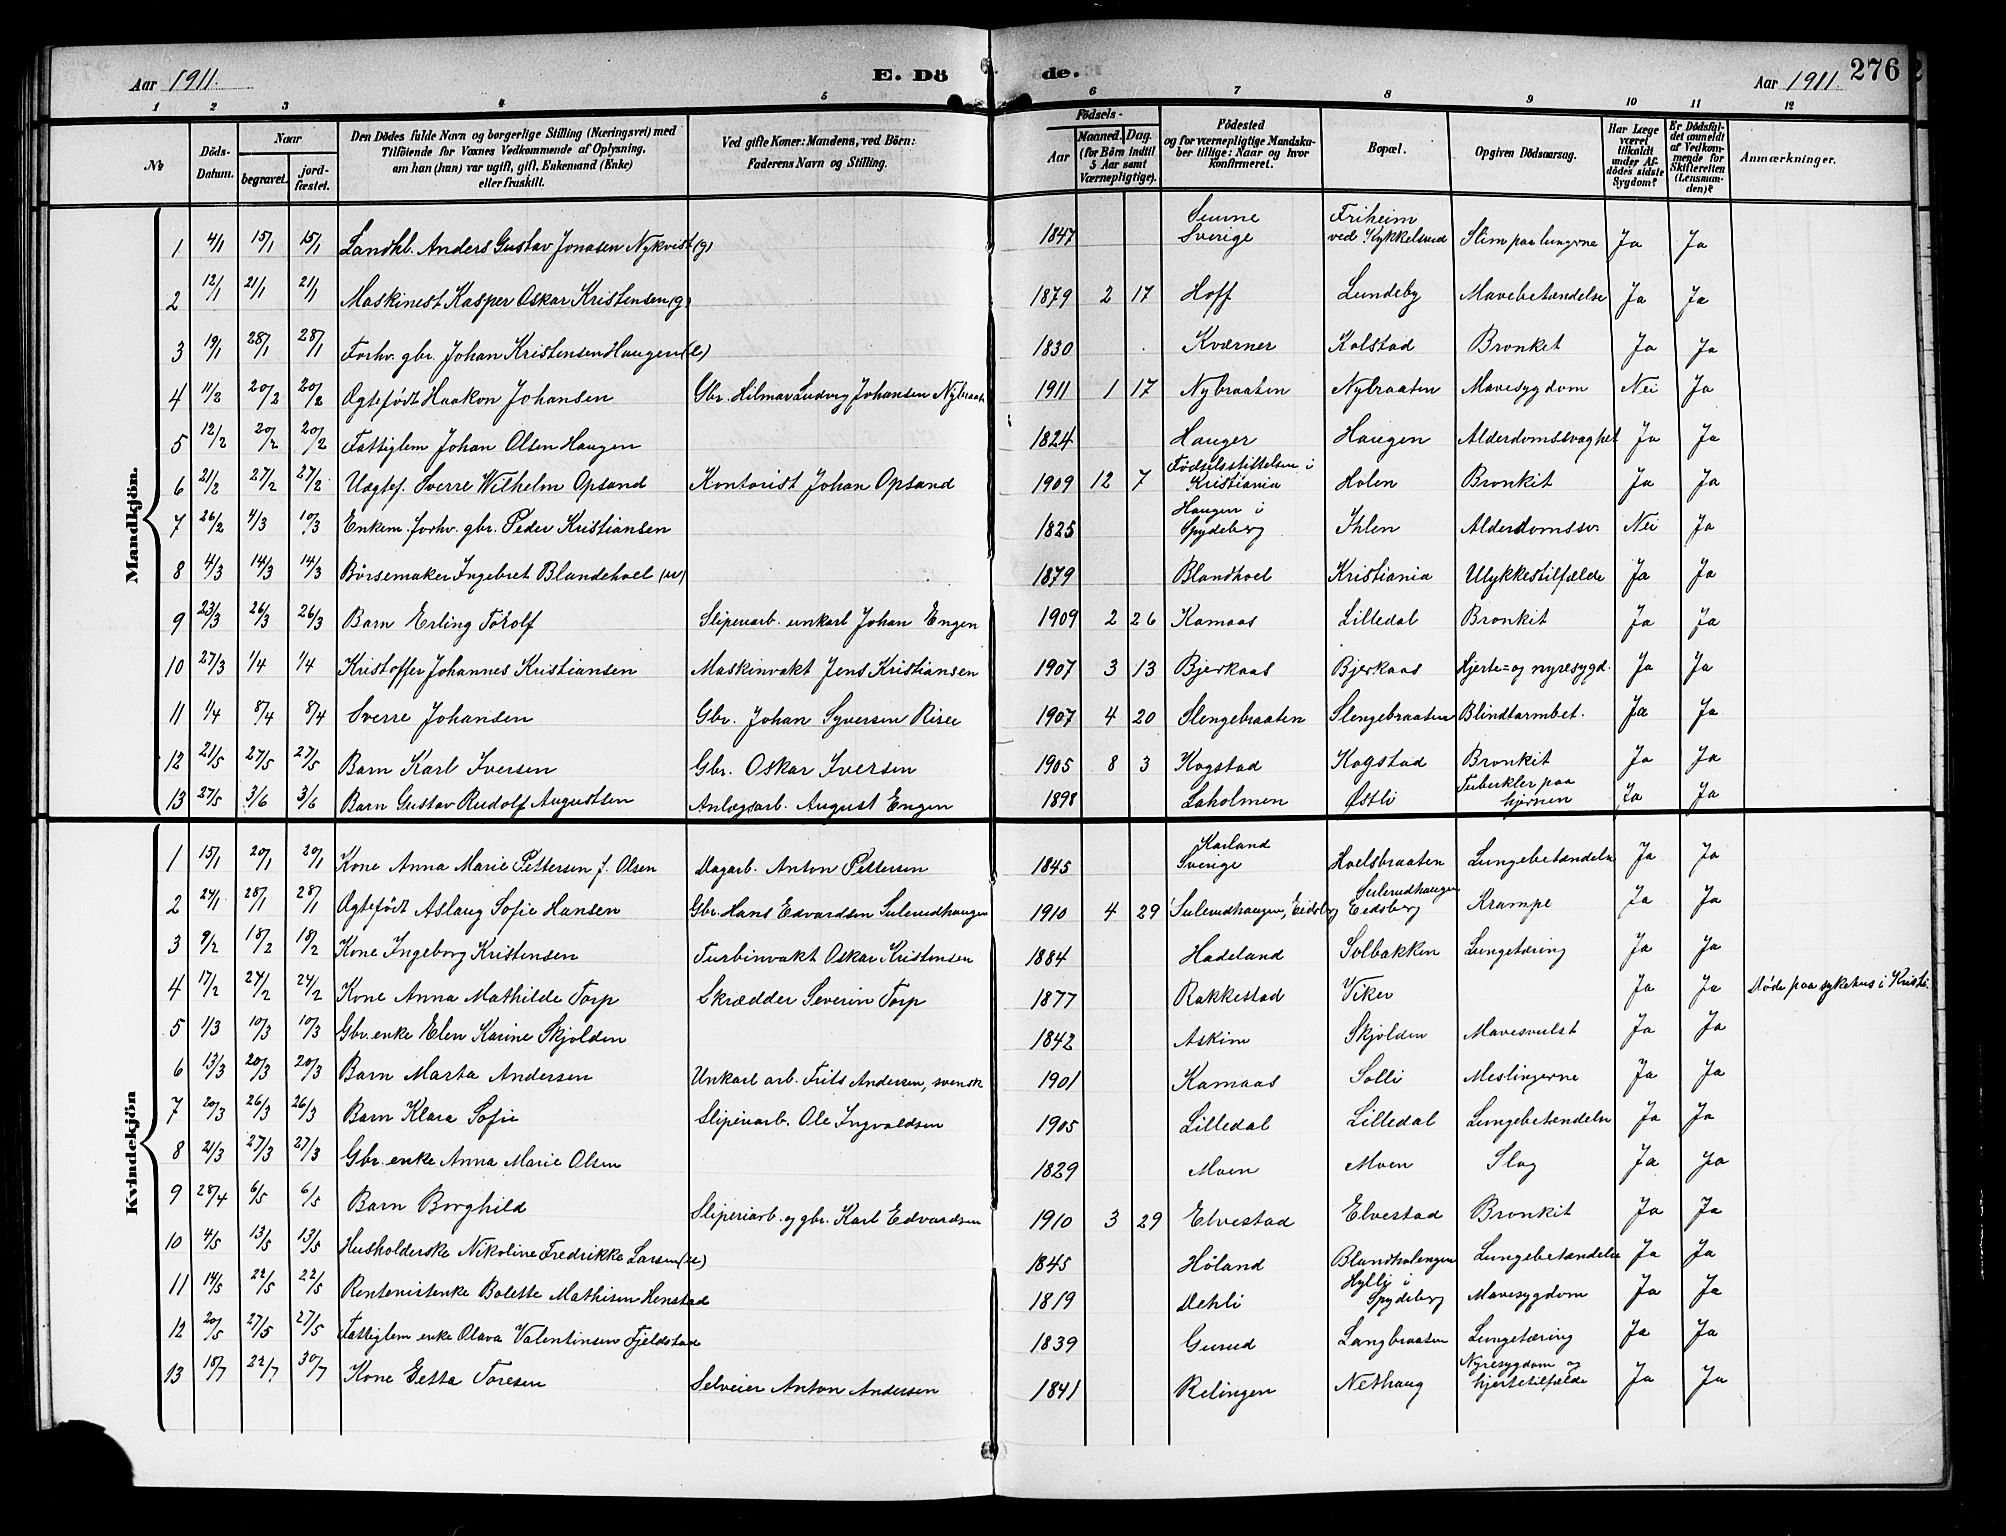 Aar 1911. E. Dö de. Aar 1911. 276
1 2 3 4 5 6 7 8 9 10 11 12
No
Döds-Datum.
Naar
begravet.
jord-fæstet.
Den Dödes fulde Navn og borgerlige Stilling (Næringsvei) med
Tilföiende for Voxnes Vedkommende af Oplysning,
om han (hun) var ugift, gift, Enkemand (Enke)
eller fraskilt.
Ved gifte Koner: Mandens, ved Börn:
Faderens Navn og Stilling.
Födsels-
Aar
Maaned. Dag.
(for Börn indtil
5 Aar samt
Værnepligtige).
Födested
og for værnepligtige Mandska-
ber tillige: Naar og hvor
konfirmeret.
Bopæl.
Opgiven Dödsaarsag.
Har Læge
været
tilkaldt
under Af-
dödes sidste
Sygdom?
Er Dödsfal-
det anmeldt
af Vedkom-
mende for
Skifteretten
(Lensman-
den)?
Anmærkninger.
Mandkjön.
1 4/1 15/1 15/1 Landhb. Anders Gustav Jonasen Nykvist (g) 1847 Sverige Friheim ved Kykkelsrud Slim paa lungerne Ja Ja
2 12/1 21/1 21/1 Maskinest Kasper Oskar Kristensen (g) 1879 2 17 Hoff Lundeby Mavebetændelse Ja Ja
3 19/1 28/1 28/1 Forhv. gbr. Johan Kristensen Haugen (e) 1830 Kværner Kolstad Bronket Ja Ja
4 11/2 20/2 20/2 Ægtefödt Haakon Johansen Gbr. Hilmar Ludvig Johansen Nybraat 1911 1 17 Nybraaten Nybraaten Mavesygdom Nei Ja
5 12/2 20/2 20/2 Fattiglem Johan Olsen Haugen 1824 Hauger Haugen Alderdomssvaghet Ja Ja
6 21/2 27/2 27/2 Uægtef. Sverre Wilhelm Opsand Kontorist Johan Opsand 1909 12 7 Fødselsstiftelsen i Kristiania Holen Bronkit Ja Ja
7 26/2 4/3 10/3 Enkem. forhv. gbr. Peder Kristiansen 1825 Haugen i Spydeberg Ihlen Alderdomssv. Nei Ja
8 4/3 14/3 14/3 Børsemaker Ingebret Blandehoel (u) 1879 Blandhoel Kristiania Ulykkestilfælde Ja Ja
9 23/3 26/3 26/3 Barn Erling Torolf Sliperiarb. unkarl Johan Engen 1909 2 26 Kamaas Lilledal Bronkit Ja Ja
10 27/3 1/4 1/4 Kristoffer Johannes Kristiansen Maskinvakt Jens Kristiansen 1907 3 13 Bjerkaas Bjerkaas Hjerte= og nyresygd. Ja Ja
11 1/4 8/4 8/4 Sverre Johansen Gbr. Johan Syversen Risee 1907 4 20 Slengebraaten Slengebraaten Blindtarmbet. Ja Ja
12 21/5 27/5 27/5 Barn Karl Iversen Gbr. Oskar Iversen 1905 8 3 Kogstad Kogstad Bronkit Ja Ja
13 27/5 3/6 3/6 Barn Gustav Rudolf Augustsen Anlægsarb. August Engen 1898 Laholmen Østli Tuberkler paa hjernen Ja Ja
Kvindekjön
1 15/1 20/1 20/1 Kone Anna Marie Pettersen f. Olsen Dagarb. Anton Pettersen 1845 Karland Sverige Hoelsbraaten Lungebetændelse Ja Ja
2 24/1 28/1 28/1 Ægtefödt Aslaug Sofie Hansen Gbr. Hans Edvardsen Sulerudhaugen 1910 4 29 Sulerudhaugen, Eidsberg Sulerudhaugen Eidsberg Krampe Ja Ja
3 9/2 18/2 18/2 Kone Ingeborg Kristensen Turbinvakt Oskar Kristensen 1884 Hadeland Solbakken Lungetæring Ja Ja
4 17/2 24/2 24/2 Kone Anna Mathilde Torp Skrædder Severin Torp 1877 Rakkestad Viker Ja Ja Døde paa sykehus i Kristi.
5 1/3 10/3 10/3 Gbr. enke Elen Karine Skjolden 1842 Askim Skjolden Mavesvulst Ja Ja
6 13/3 20/3 20/3 Barn Marta Andersen Unkarl arb. Frits Andersen, svensk 1901 Kamaas Solli Meslingerne Ja Ja
7 20/3 26/3 26/3 Barn Klara Sofie Sliperiarb. Ole Ingvaldsen 1905 Lilledal Lilledal Lungebetændelse Ja Ja
8 21/3 27/3 27/3 Gbr. enke Anna Marie Olsen 1829 Moen Moen Slag Ja Ja
9 28/4 6/5 6/5 Barn Borghild Sliperiarb. og gbr. Karl Edvardsen 1910 3 29 Elvestad Elvestad Bronkit Ja Ja
10 4/5 13/5 13/5 Husholderske Nikoline Fredrikke Larsen 1845 Høland Blandholengen Lungebetændelse Ja Ja
11 14/5 22/5 22/5 Rentenistenke Bolette Mathisen Henstad 1819 Dehli Hylli i Spydeberg Mavesygdom Ja Ja
12 20/5 27/5 27/5 Fattiglem enke Olava Valentinsen Fjeldstad 1839 Gurud Langbraaten Lungetæring Ja Ja
13 18/7 22/7 30/7 Kone Getta Toresen Selveier Anton Andersen 1841 Relingen Nethaug Nyresygdom og hjertetilfælde Ja Ja